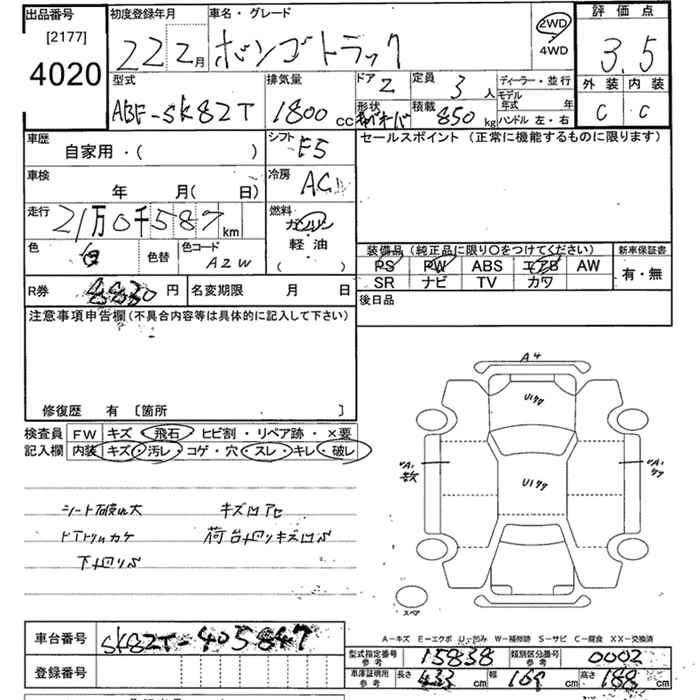 出品番号
[2177]
4020
初度登録年月
22 2月
車名・グレード
ボンゴトラック
2WD
4WD
評価点
3.5
外装 内装
C C
型式
ABF-SK82T
排気量
1800cc
ドア 2
形状
定員 3人
積載 850kg
ディーラー・並行
モデル年式 年
ハンドル 左・右
車歴
自家用・( )
シフト F5
セールスポイント (正常に機能するものに限ります)
車検
年 月( 日)
冷房 AC
走行
21万0千587km
燃料
ガソリン
軽油
( )
色 白
色替
色コード A2W
装備品(純正品に限り○をつけてください)
PS PW ABS エアB AW
SR ナビ TV カワ
新車保証書
有・無
R券 8830円
名変期限 月 日
後日品
注意事項申告欄(不具合内容等は具体的に記入して下さい)
修復歴 有 〔箇所 〕
検査員記入欄
FW キズ・飛石・ヒビ割・リペア跡・×要
内装 キズ・汚レ・コゲ・穴・スレ・キレ・破レ
シート破れ大 キズ凹アセ
下廻りS
A4
U177
U177
スペア
A-キズ E-エクボ U-凹み W-補修跡 S-サビ C-腐食 XX-交換済
車台番号 SK82T-405847
登録番号
型式指定番号 参考 15838
類別区分番号 参考 0002
車庫証明用 参考 長さ 433cm 幅 169cm 高さ 188cm